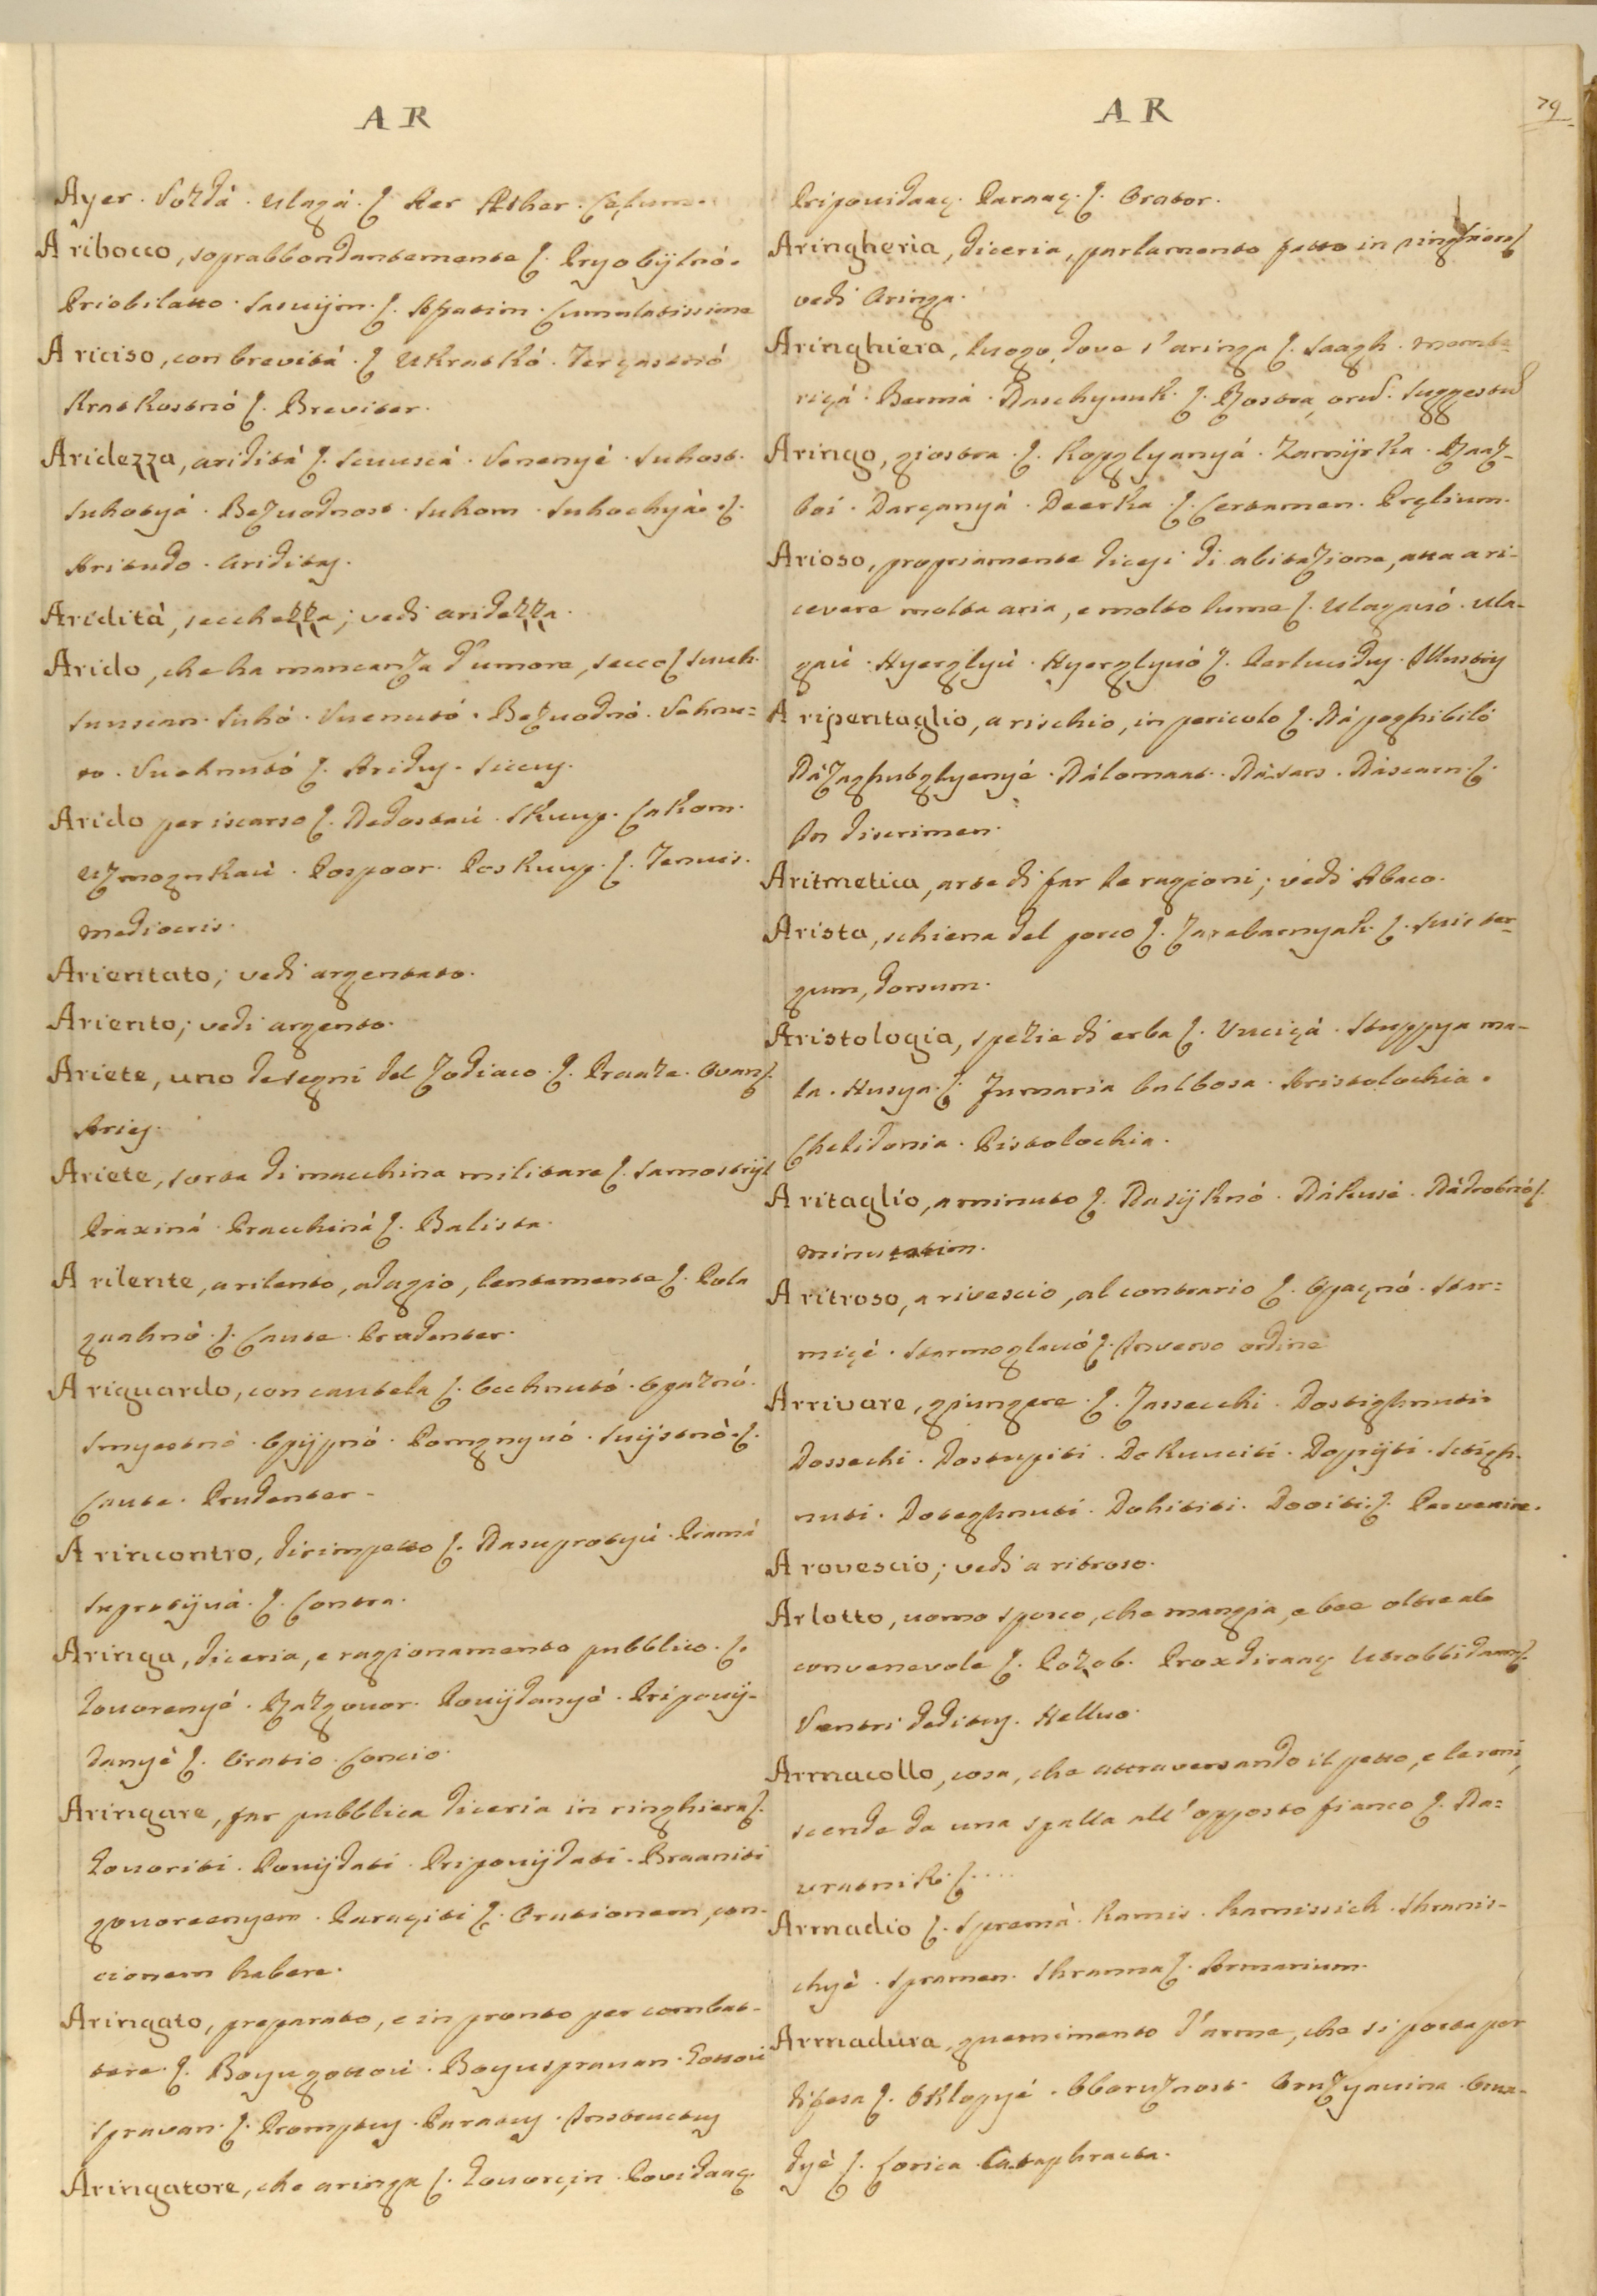 A R
Ayer. Vozdà. Ulagá. ʃ. Aer Æther. Cælum.
A ribocco, soprabbondantemente ʃ. Pryobÿlnó.
Priobilatto. Sasuijm. ʃ. Affatim. Cumulatissime
A riciso, con brevità. ʃ. Ukratkó. Terçastnó
Kratkostnó ʃ. Breviter.
Aridezza, aridità ʃ. Scuuscá. Venenyé. Suhost.
Suhotyá. Bezuodnost. Suhom. Suhochyá. ʃ.
Aritudo. Ariditas.
Aridità, secchezza; vedi aridezza.
Arido, che ha mancanza d'umore, secco ʃ. Suuh.
Suuscan. Suhó. Vuenutó. Bezuodnó. Vahnu=
to. Vuehnutó ʃ. Aridus. Siccus.
Arido per iscarso ʃ. Nedostaú. Skuup. Lakom.
Uzmognkaú. Pospoor. Poskuup. ʃ. Tenuis.
Mediocris.
Arientato; vedi argentato.
Ariento; vedi argento.
Ariete, uno de segni del Zodiaco. ʃ. Praaz. Ovan ʃ.
Aries.
Ariete, sorta di macchina militare ʃ. Samostrÿl
Praxiná. Pracchiná ʃ. Balista.
A rilente, a rilento, adagio, lentamente ʃ. Pola
guahnó. ʃ. Caute. Prudenter.
A riguardo, con cautela ʃ. Occhnutó. Opaznó.
Smyestnó. Opÿpnó. Pomgnyuó. Suÿstnó. ʃ.
Caute. Prudenter.
A rincontro, dirimpetto ʃ. Nasuprotyú. Pramá
Suprotÿuá. ʃ. Contra.
Aringa, diceria, e ragionamento pubblico. ʃ.
Gouorenyé. Razgouor. Pouÿdanyé. Pripouÿ-
danyé ʃ. Oratio. Concio.
Aringare, far pubblica diceria in ringhiera ʃ.
Gouoriti. Pouÿdati. Pripouÿdati. Braaniti
gouoreenyem. Paraçiti ʃ. Orationem, con-
cionem habere.
Aringato, preparato, e in pronto per combat-
tere. ʃ. Boyugottou. Boyuspravan. Gottou
Spravan. ʃ. Promptus. Paratus. Instructus
Aringatore, che aringa ʃ. Gouorçin. Povidaaç.
A R
79
Pripouidaaç. Parnaaç. ʃ. Orator.
Aringheria, diceria, parlamento fatto in ringhiera ʃ
vedi Aringa.
Aringhiera, luogo, dove s'aringa ʃ. Saagh. Mombe-
riçá. Bermá. Naschyuuk. ʃ. Rostra, orum. Suggestus
Aringo, giostra. ʃ. Kopglyanyá. Zamÿrka. Raaz-
boi. Darçanyá. Deerka. ʃ. Certamen. Prælium.
Arioso, propriamente dicesi di abitazione, atta a ri-
cevere molta aria, e molto lume ʃ. Ulagauó. Ula-
gaú. Hyerglyú. Hyerglyuó ʃ. Perlucidus. Illustris
A ripentaglio, a rischio, in pericolo ʃ. Ná poghibiló
Názaghubglyenyé. Nálomaat. Nátars. Náscarn. ʃ.
In discrimen.
Aritmetica, arte di far le ragioni; vedi Abaco.
Arista, schiena del porco ʃ. Zarebarnyak. ʃ. Suis ter-
gum, dorsum.
Aristologia, spezie di erba ʃ. Vuciçá. Stuppya ma-
la. Husya. ʃ. Fumaria bulbosa. Aristolochia.
Chelidonia. Pistolochia.
A ritaglio, a minuto ʃ. Nasÿknó. Nákusé. Nádrobnó ʃ.
Minutatim.
A ritroso, a rivescio, al contrario ʃ. Opaçnó. Star=
miçé. Starmoglauó ʃ. Inverso ordine
Arrivare, giungere. ʃ. Zassecchi. Dostighnuti.
Dossechi. Dostupiti. Dokuuciti. Doppÿti. Sctigh-
nuti. Doteghnuti. Dohititi. Dooiti. ʃ. Pervenire.
A rovescio; vedi a ritroso.
Arlotto, uomo sporco, che mangia, e bee oltre al
convenevole ʃ. Pozob. Proxdiraaç Utrobbidaam ʃ.
Ventri deditus. Helluo.
Armacollo, cosa, che attraversando il petto, e le reni,
scende da una spalla all'opposto fianco ʃ. Na=
uratnik. ʃ. ....
Armadio ʃ. Spremá. Kamis. Kamissich. Shranis-
chyé. Spramen. Shranna ʃ. Armarium.
Armadura, guernimento d'arme, che si porta per
difesa ʃ. Oklopyé. Oboruznost. Oruzyauina. Orua-
dyé ʃ. Lorica. Cataphracta.